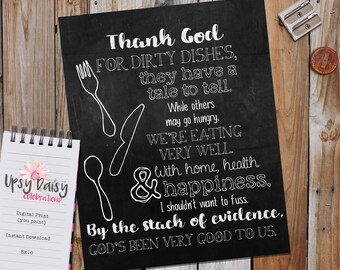 Thank God
FOR DIRTY DISHES,
they have a
tale to tell.
While others
may go hungry.
WE'RE EATING
VERY WELL.
With home, health
& happiness,
I shouldn't want to fuss.
By the stack of evidence,
GOD'S BEEN VERY GOOD TO US.
Upsy Daisy
celebrations
Digital Print
(you print)
Instant Download
8x10